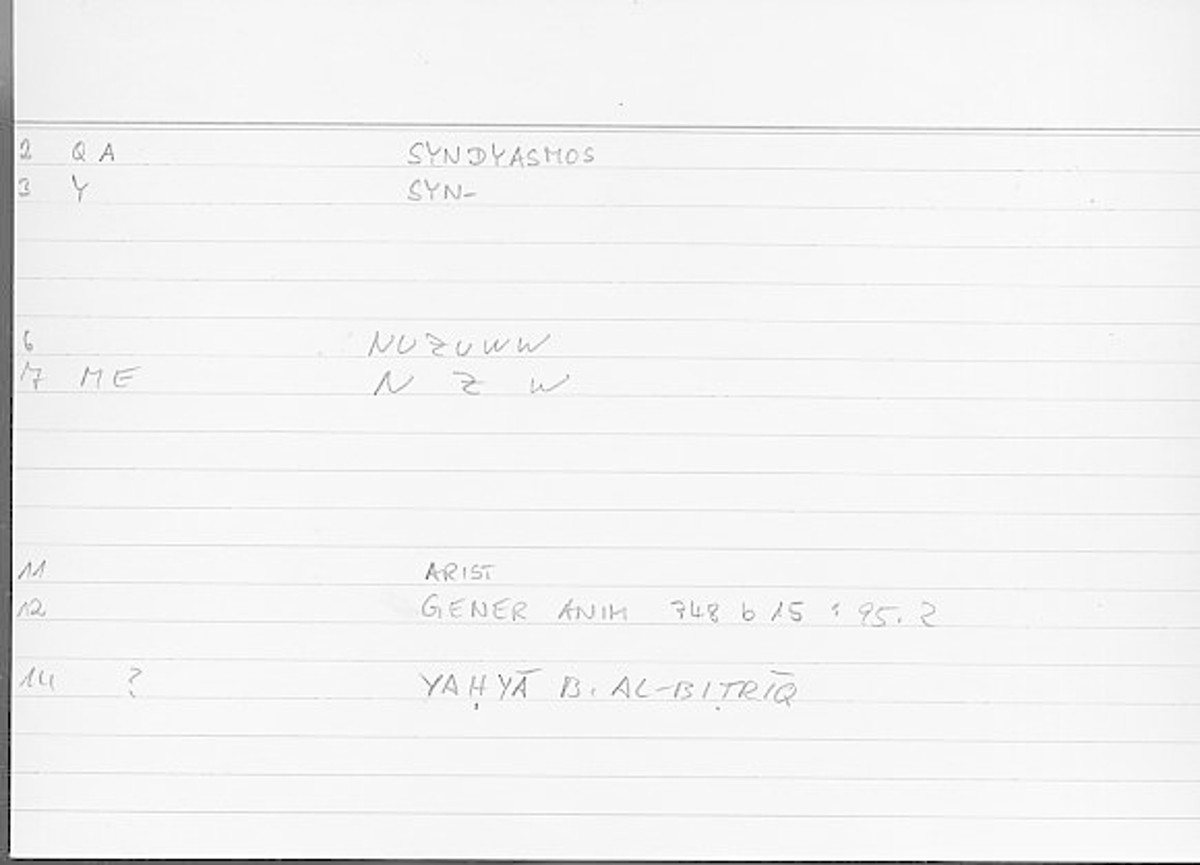 2 QA SYNDYASMOS
3 Y SYN-
6 NUZUWW
17 ME N Z W
11 ARIST
12 GENER ANIM 748 b 15 : 95.2
14 ? YAḤYĀ B. AL-BIṬRĪQ